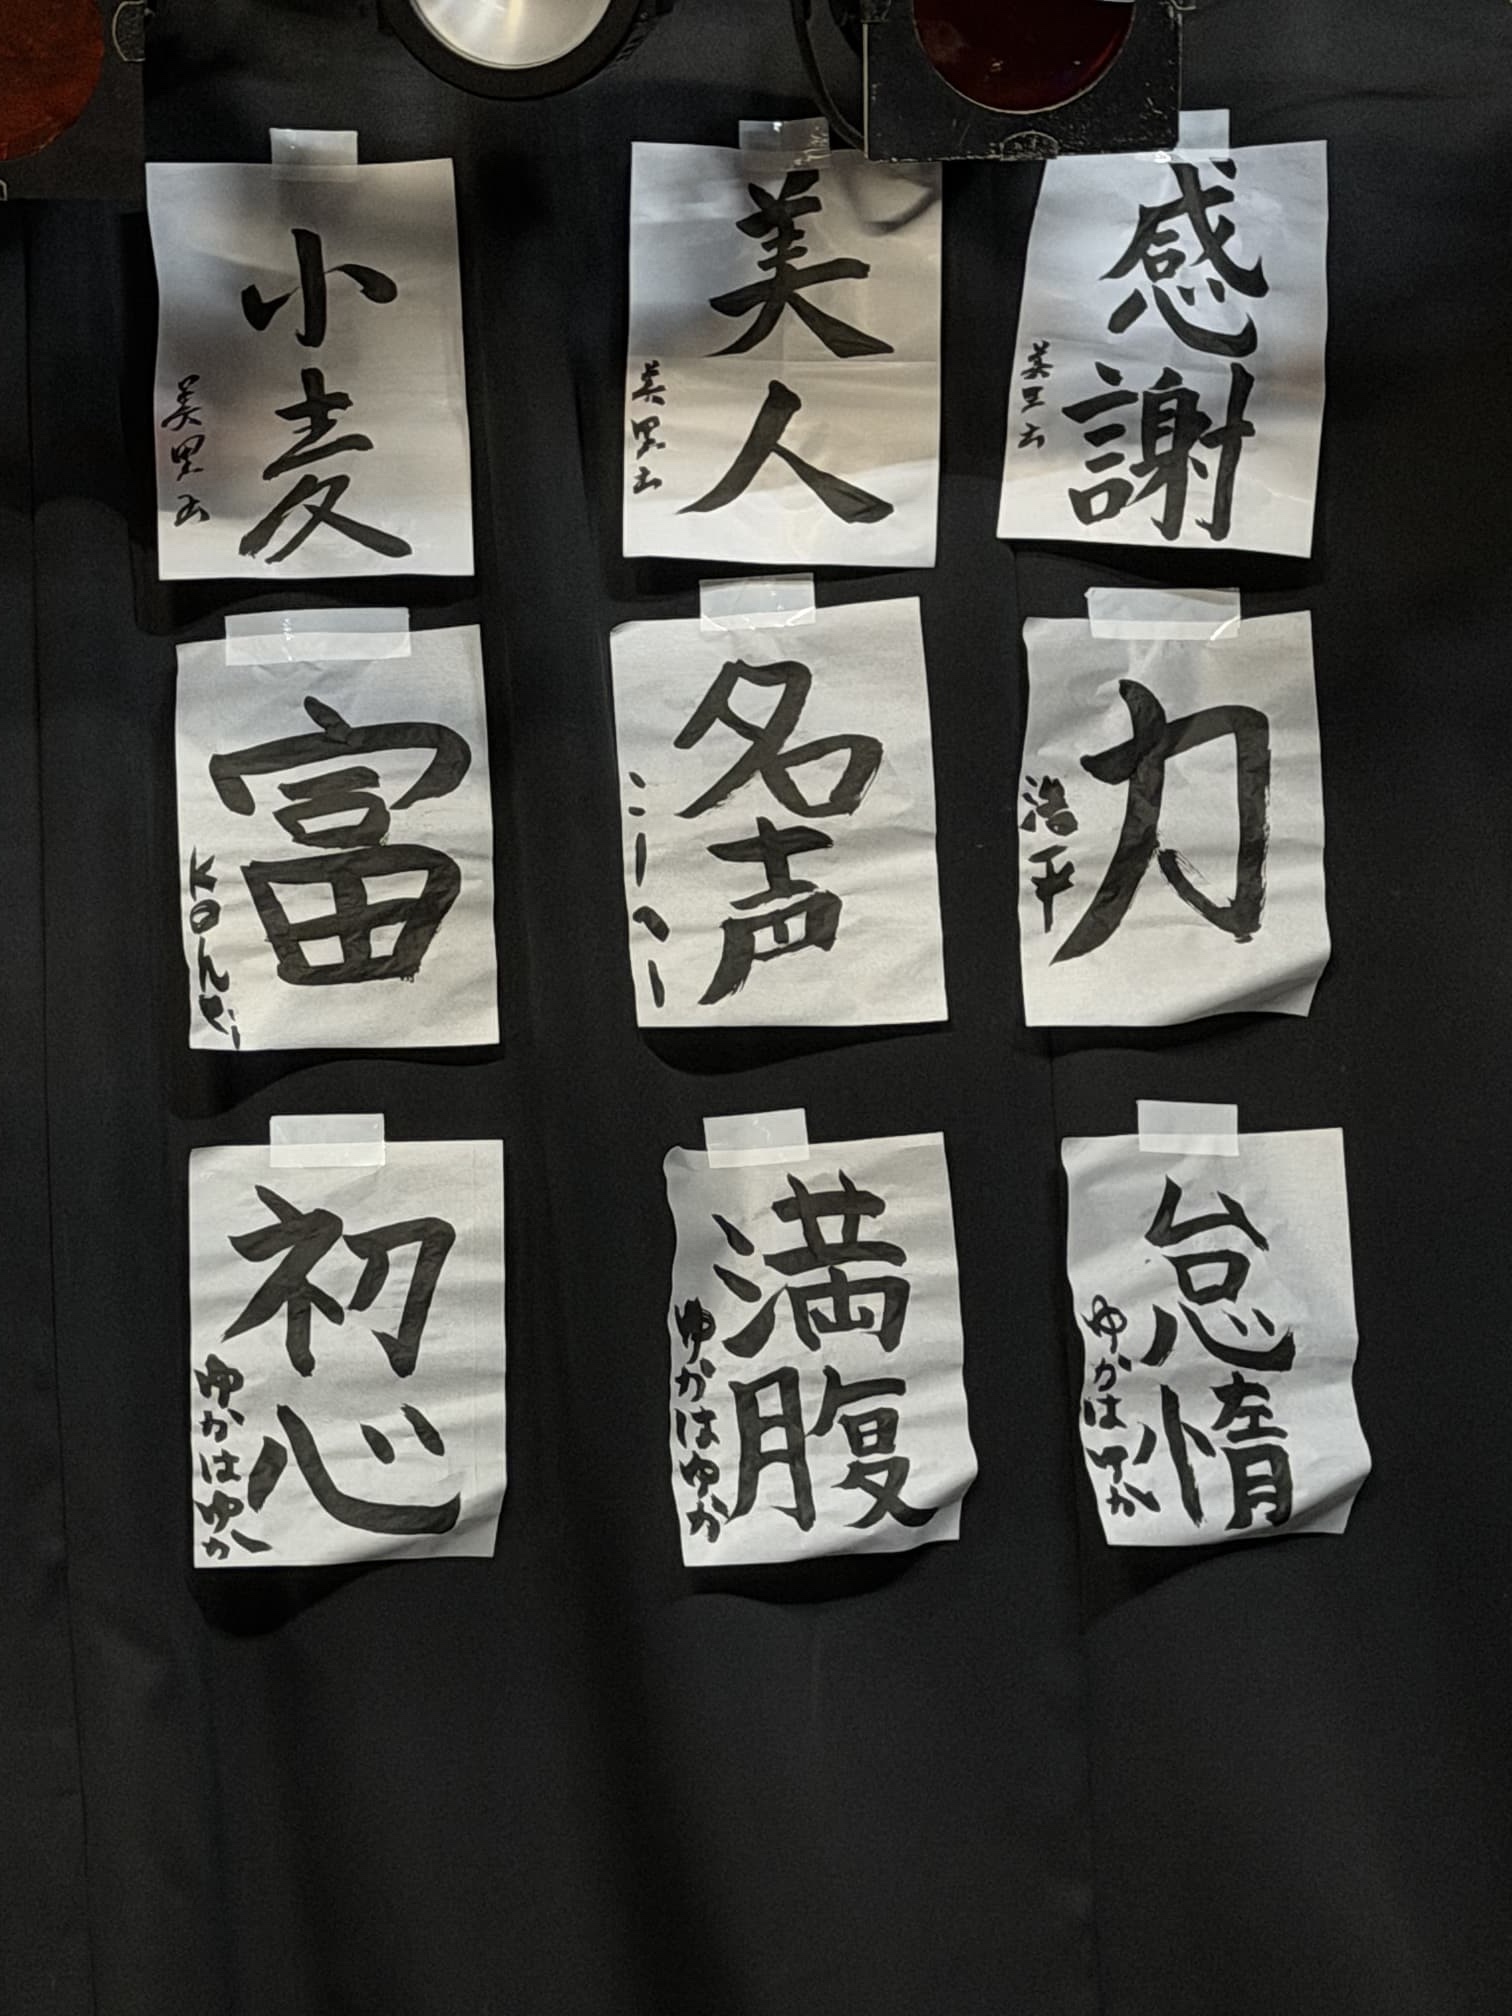 感謝
美里玉
美人
美里玉
小麦
美里玉
力
浩平
名声
こーへー
富
初心
ゆかはゆか
満腹
ゆかはゆか
怠惰
ゆかはゆか